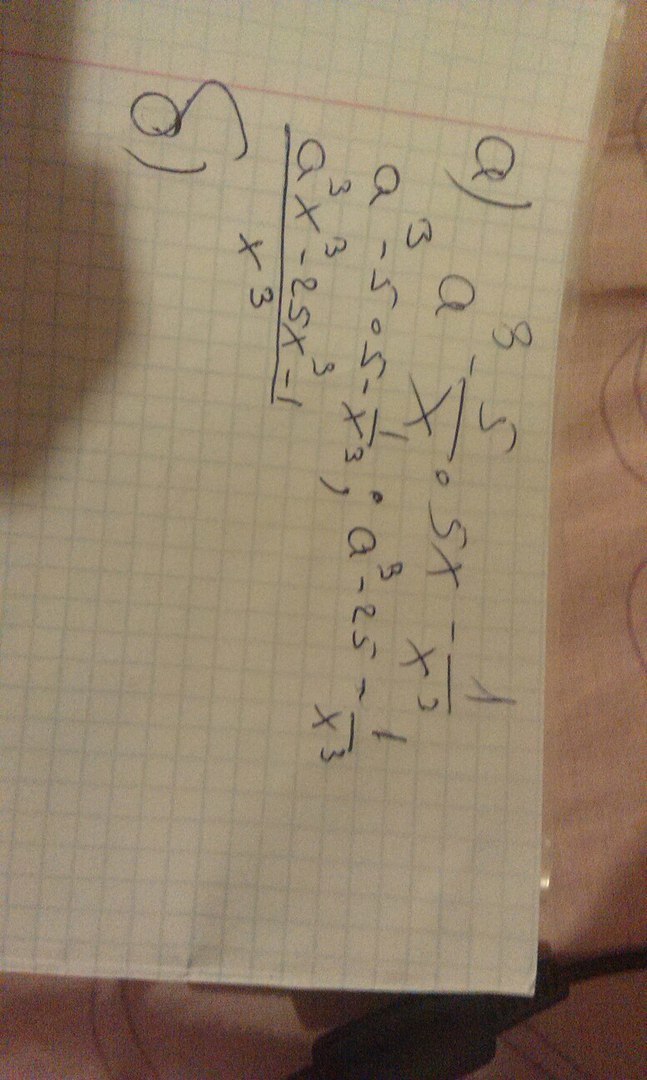 а) a³ - 5/x · 5x - 1/x³
a³ - 5 · 5 - 1/x³ ; a³ - 25 - 1/x³
(a³x³ - 25x³ - 1)/x³
б)